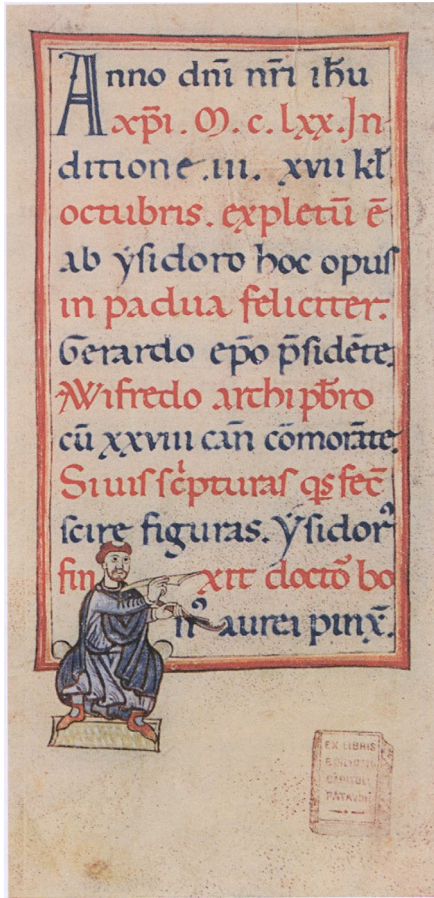 Anno dn̄i nr̄i ih̄u
xp̄i. M. c. lxx. In
ditione. iii. xvii kł
octubris. expletū ē
ab ẏsidoro hoc opus
in padua feliciter.
Gerardo ep̄o p̄sidēte.
Wifredo archipb̄ro
cū xxviii can̄ cōmorāte.
Si uis sc̓pturas qs fec̄
scire figuras. Ẏsidorꝰ
finxit doctō bo
nꝰ aurei pinx̄.
EX LIBRIS
CAPITULI
PATAVINI